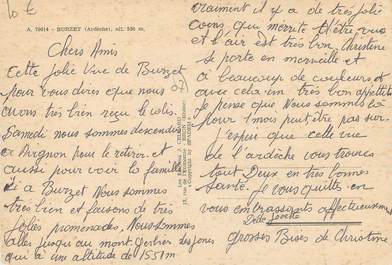 10 €
A. 79014 - BURZET (Ardèche), alt. 550 m.
Chers Amis
Cette Jolie Vue de Burzet
pour vous dires que nous
avons très bien reçu le colis.
Samedi nous sommes descendu
a Avignon pour le retirer et
aussi pour voir la famille
ici a Burzet Nous sommes
très bien et faisons de très
Jolies promenades, Nous sommes
alles jusqu au mont gerbier des joncs
qui à une altitude de 1551m
vraiment il y a de très jolie
coins qui merrite d'être vue
et l'air est très bon, Christine
se porte en merveille et
a beaucoup de couleurs et
avec cela un très bon appettit
Je pense que Nous sommes là
pour 1 mois peut être pas sur.
J'espère que cette vue
de l'ardèche vous trouves
tout Deux en très bonnes
Santé. Je vous quittes en
vous embrassants affectueusement
grosses Bises de Christine